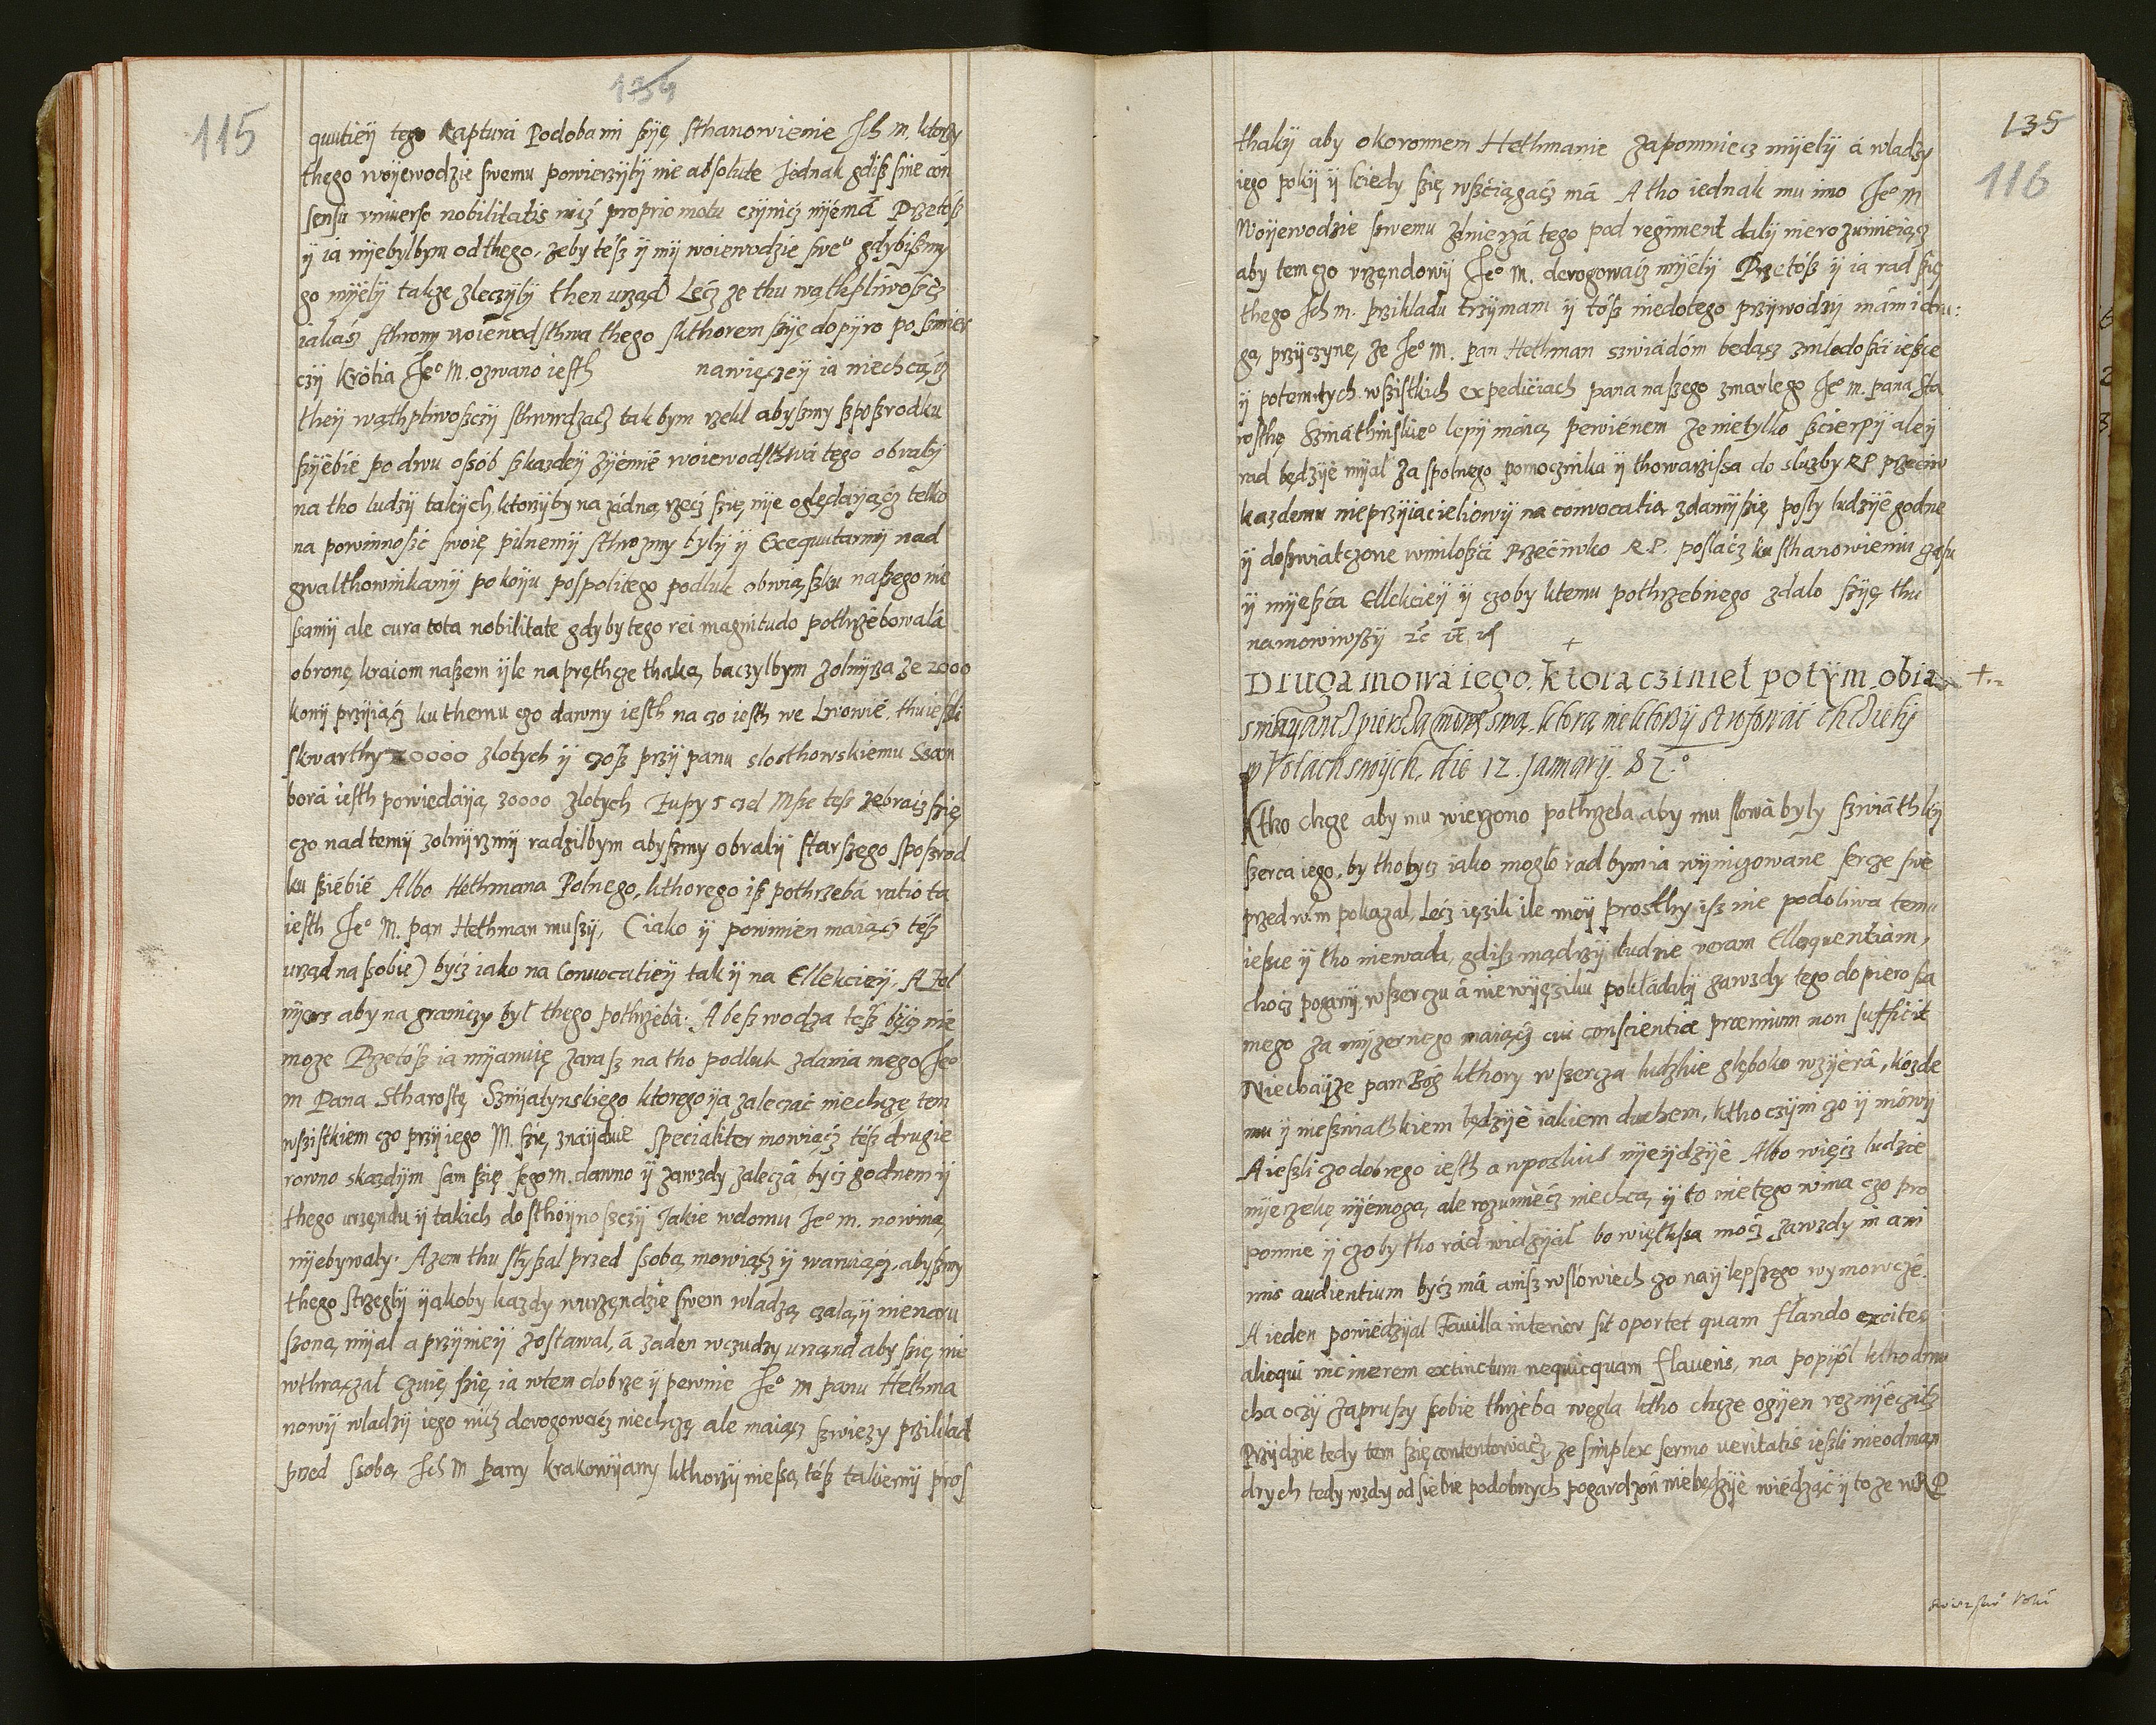 134
115
quutiey tego kaptura Podoba mi ssię sthanowienie Ich m. ktorzy
thego woyewodzie swemu powierzyly nie absolute Jednak gdiß sine con
sensu vniuerse nobilitatis niz proprio motu czynicz nyema Przetoß
y ia nyebylbym od thego, zeby teß y my woiewodzie sweº gdybißmy
go myely takze zleczyly then urząd Lecz ze thu wąthpliwoßcz
iakasz sthrony woiewodsthwa thego skthorem ßyę dopyro po ßmier
czy Krolia Jeº M. ozwano iesth nawięczey ia niechcącz
they wąthpliwoßczy sthwirdzacz tak bym rzekl abyßmy ßpoßrodku
ßyebie po dwu osob ßkazdey zyemie woiewodsthwa tego obraly
na tho ludzy takych, ktorzyby na zadną rzecz ßię nye oględayącz telko
na powinnoßc swoię pilnemy sthrozmy byly y Exequutarmy nad
gwalthownikamy pokoyu pospolitego podluk obwiąßku naßego nie
ßamy ale cura tota nobilitate gdyby tego rei magnitudo pothrzebowala
obronę kraiom naßem yle naprętcze thaką baczylbym zolnyrza ze 2000
kony przyiącz ku themu czo dawny iesth na czo iesth we Lwowie, thu ießli
skwarthy 20000 zlotych y czoß przy panu slosthowskiemu Ssam
bora iesth powiedaya 30000 zlotych Zupy 5 czel Mße teß zebracz ßię
czo nad temy zolnyrzmy radzilbym abyßmy obraly starßego spoßrod
ku ßiebie Albo Hethmana Polnego, kthorego iß pothrzeba ratio ta
iesth Jeº M. pan Hethman mußy, (iako y powinien maiącz teß
urząd na ssobie) bycz iako na Conuocatiey tak y na Ellekciey. A Zol
nyerz aby na graniczy byl thego pothrzeba. A beß wodza teß bycz nie
moze Przetoß ia myanuię zaraß na tho podluk zdania mego Jeº
m Pana Stharostę Sznyatynskiego ktorego ya zaleczac niechczę tem
wßistkiem czo przy iego M. ßię znayduie specialiter mowiącz teß drugie
rowno skazdym sam ßię Jego m. dawno y zawzdy zalecza bycz godnem y
thego urzędu y takich dosthoynoßczy Jakie wdomu Jeº m. nowiną
nyebywaly. Azem thu slyßal przed ssobą mowiącz y waruiącz, abyßmy
thego strzegly yakoby kazdy wurzędzie swem wladzą, czalą, y nienaru
szoną myal a przyniey zostawal, a zaden wczudzy urząd aby ßię nie
wthrączal czuię ßię ia wtem dobrze y pewnie Jeº m panu Hethma
nowy wladzy iego nicz derogowacz niechczę ale maiącz ßwiezy przilklad
przed ssobą Ich M Pany Krakowyany kthorzy nießą teß takiemy pros
135
116
thaky aby okoronnem Hethmanie zapomniecz myely á wladzy
iego poky y kiedy ßię wßciągacz ma A tho iednak mimo Jeº M
Woyewodzie swemu zolnierza tego pod regiment daly nierozumieiącz
aby tem czo vrzędowy Jeº M. derogowacz myely Przetoß y ia rad ßię
thego Ich m. przikladu trzymam y toß niedotego przywodzy mam i dru:
gą, przyczynę, ze Jeº M. pan Hethman ßwiadom będącz zmlodoßci ieszce
y potem tych wßistkich expediciach pana naßego zmarlego Jeº m. pana Sta
rosthę Szniathinskieº lepy maią pewienem ze nietylko ßcierpy ale y
rad będzye myal za spolnego pomocznika y thowarzißa do sluzby RP. przeciw
kazdemu nieprzyiacieliowy na convocatią zdamy ßię posly ludzye godne
y doßwiatczone wmiloßci przeciwko R.P. poslacz ku sthanowieniu czasu
y myesca Ellekciey y czoby ktemu pothrzebnego zdalo ßyę thu
namowiwßy &c &c &c
+
Druga mowa iego, ktorą cziniel potym obia
+
sniayancz piersza mowę swą, ktorą niektorzy strofowac chcziely
w Rolach swych, die 12. January. 87.º
Ktho chcze aby mu wierzono pothrzeba aby mu slowa byly ßwiathky
ßerca iego, by tho bycz iako moglo rad bym ia wyniczowane serce swe
przed w.m pokazal, Lecz ięzik ile moy prosthy iß nie podoliwa temu
ießce y tho niewada, gdiß mądrzy ludzie veram Elloquentiam,
chocz pogany, wßerczu a niewyęziku pokladaly zawzdy tego dopiero ßa
mego za myzernego maiącz cui conscientiæ præmium non sufficit
Niechayze pan Bog kthory wßercza ludzkie glęboko wzyera, kozde
mu y nießwiathkiem będzye iakiem duchem, ktho czyni czo y mowy
A ießli czo dobrego iesth a wposluch nyeydzye Albo więcz ludzce
nye rzekę nyemogą, ale rozumiecz niechcą, y to nie tego wina czo pro
pomnie y czoby tho rad widzyal bo więthßa mocz zawzdy in ani
mis audientium bycz ma anisz wslowiech czo naylepßego wymowcze.
A ieden powiedzyal Fauilla interior sit oportet quam flando excites
alioqui in cinerem extinctum nequicquam flaueris, na popyol ktho dmu
cha oczy zaprußy ssobie thrzeba węgla ktho chcze ogyen roznyeczicz
Przydzie tedy tem ßię contentowacz, ze simplex sermo veritatis ießli nieodmąn
drych tedy wzdy od siebie podobnych pogardzon niebędzye wiedząc y to ze wRP